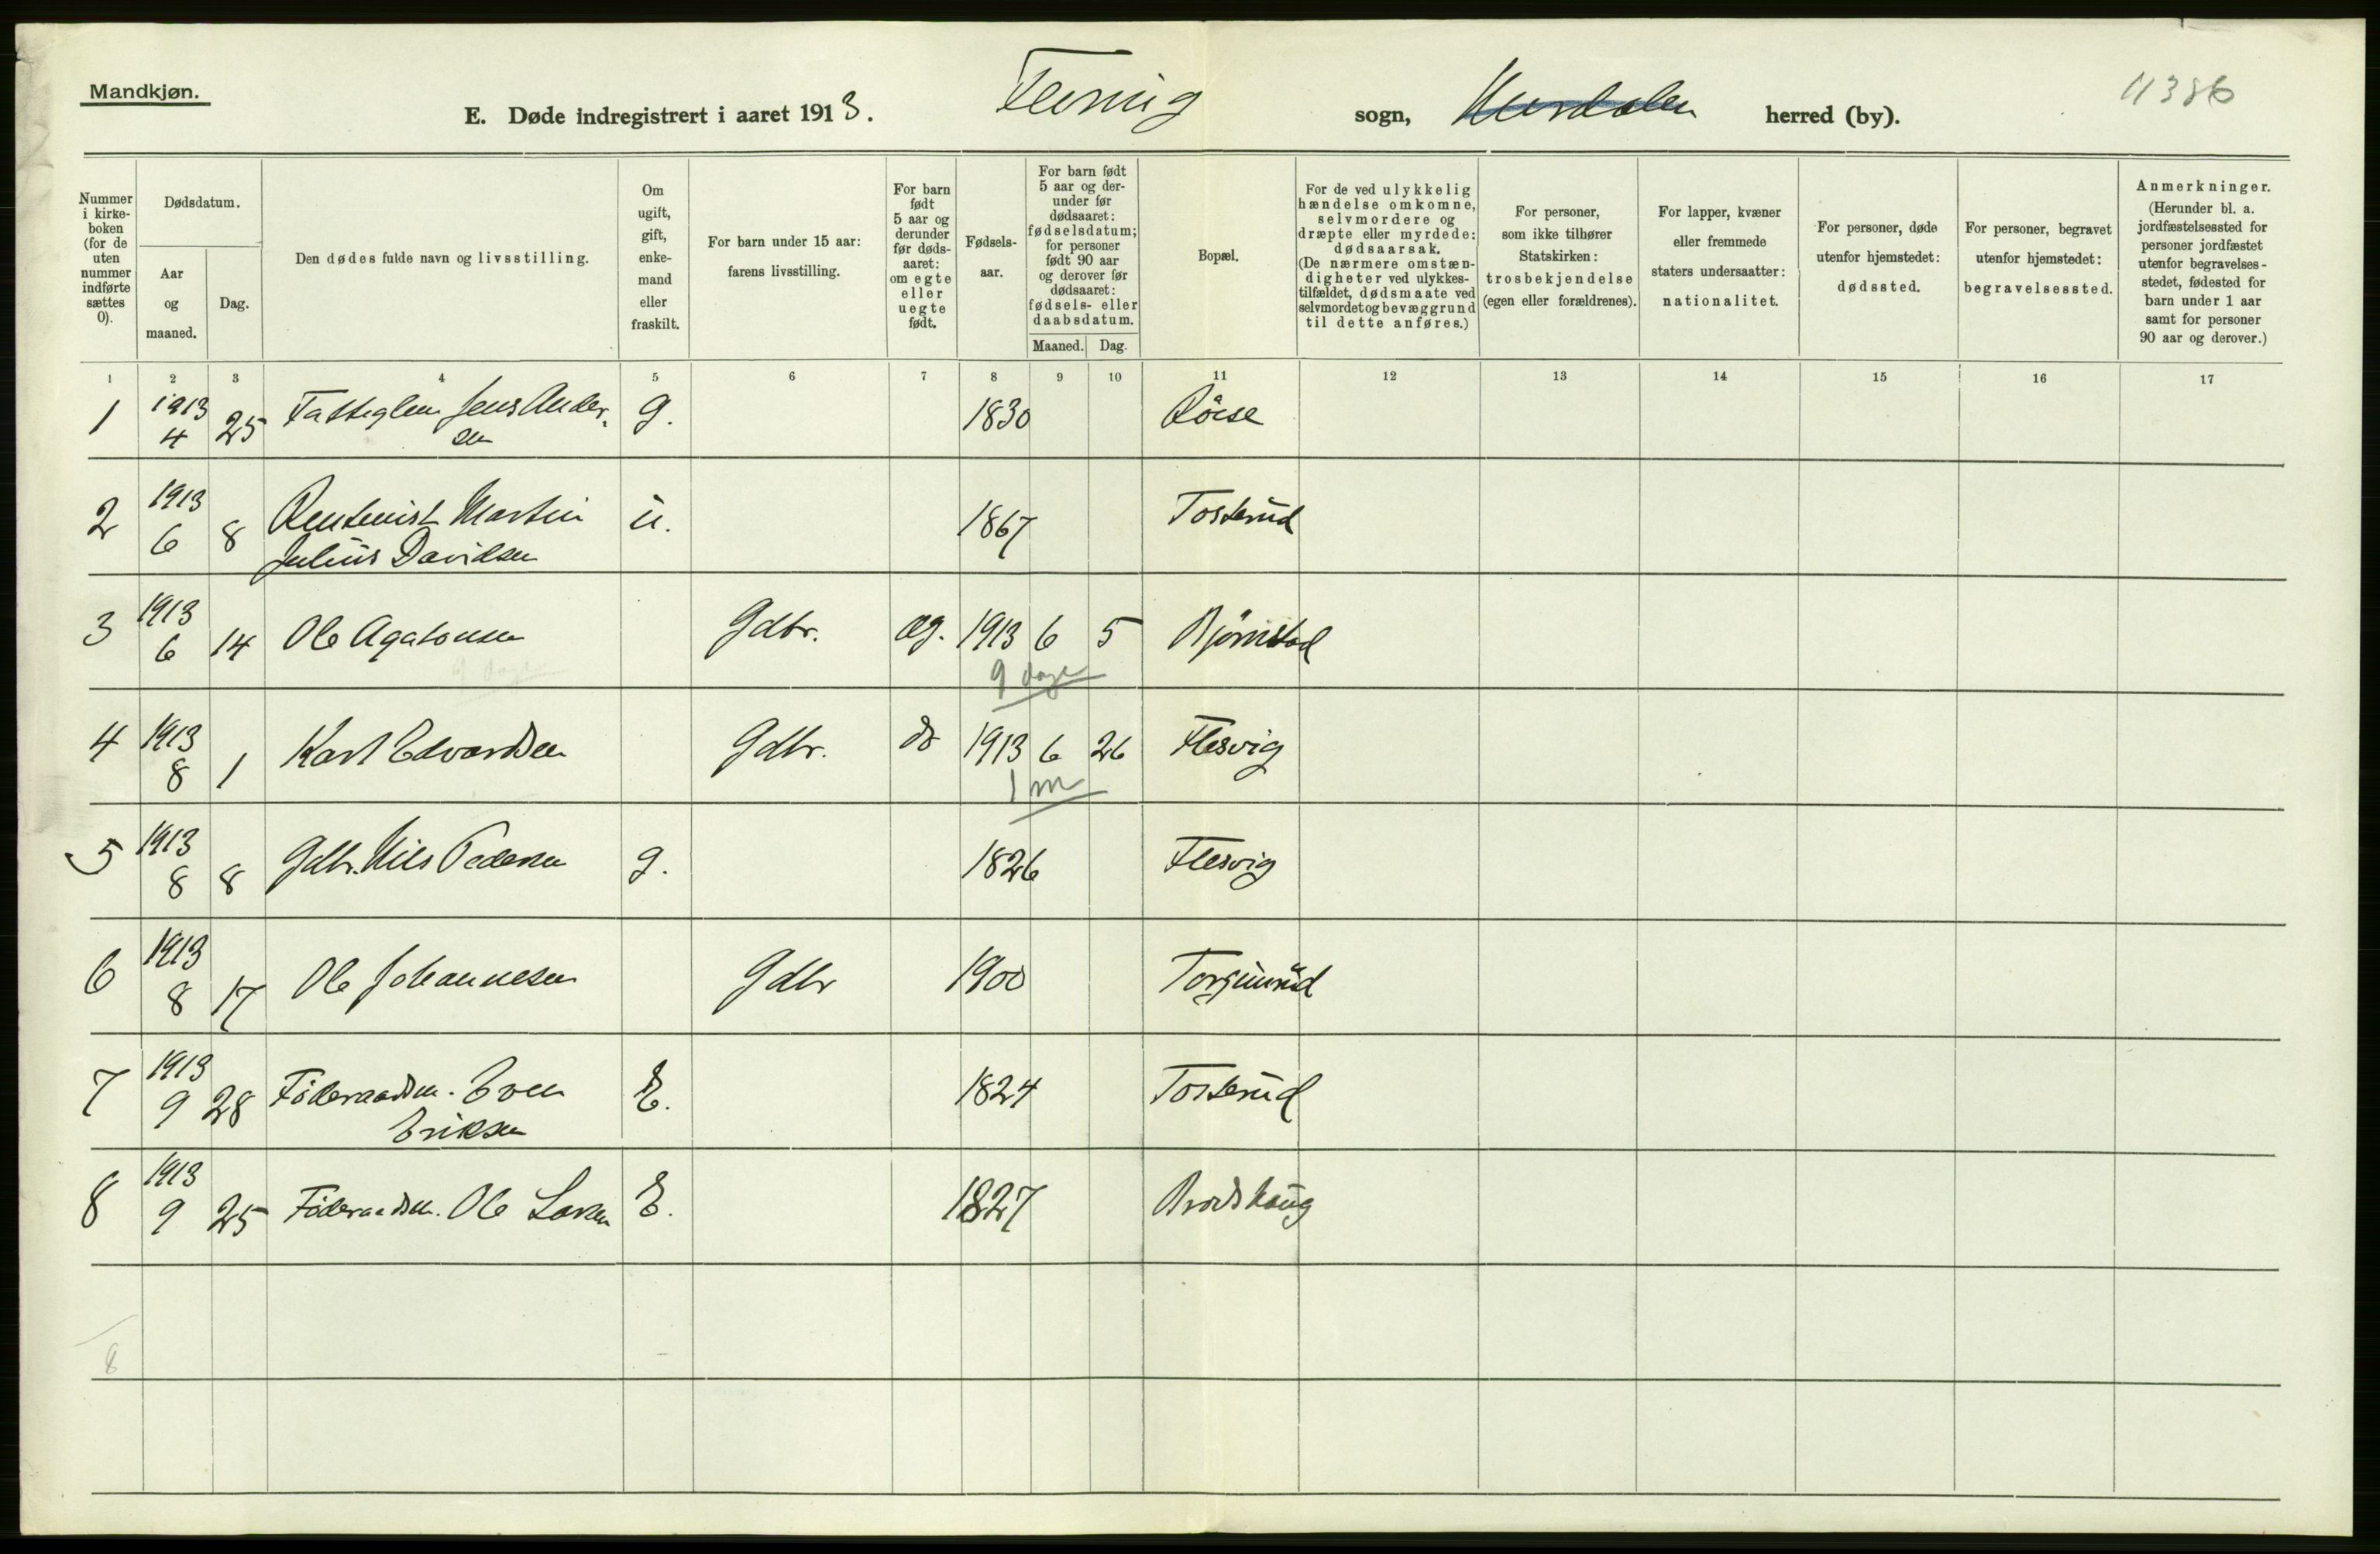 Mandkjøn.
E. Døde indregistrert i aaret 1913. Feiring sogn, Hurdalen herred (by).
4386
Nummer i kirkeboken (for de uten nummer indførte sættes 0).
Dødsdatum.
Aar og maaned.
Dag.
Den dødes fulde navn og livsstilling.
Om ugift, gift, enkemand eller fraskilt.
For barn under 15 aar: farens livsstilling.
For barn født 5 aar og derunder før dødsaaret: om egte eller uegte født.
Fødselsaar.
For barn født 5 aar og derunder før dødsaaret: fødselsdatum; for personer født 90 aar og derover før dødsaaret: fødsels- eller daabsdatum.
Maaned. Dag.
Bopæl.
For de ved ulykkelig hændelse omkomne, selvmordere og dræpte eller myrdede: dødsaarsak. (De nærmere omstændigheter ved ulykkestilfældet, dødsmaate ved selvmordet og bevæggrund til dette anføres.)
For personer, som ikke tilhører Statskirken: trosbekjendelse (egen eller forældrenes).
For lapper, kvæner eller fremmede staters undersaatter: nationalitet.
For personer, døde utenfor hjemstedet: dødssted.
For personer, begravet utenfor hjemstedet: begravelsessted.
Anmerkninger. (Herunder bl. a. jordfæstelsessted for personer jordfæstet utenfor begravelsesstedet, fødested for barn under 1 aar samt for personer 90 aar og derover.)
1 2 3 4 5 6 7 8 9 10 11 12 13 14 15 16 17
1 1913 4 25 Fattiglem Jens Andersen g. 1830 Röise
2 1913 6 8 Rentenist Martin Julius Davidsen u. 1867 Tosterud
3 1913 6 14 Ole Agatonsen Gdbr. æg. 1913 6 5 Bjørnstad
9 dage
4 1913 8 1 Karl Edvardsen Gdbr. do 1913 6 26 Flesvig
1 m
5 1913 8 8 Gdbr. Nils Pedersen g. 1826 Flesvig
6 1913 8 17 Ole Johannesen Gdbr 1900 Torgunrud
7 1913 9 28 Föderaadsm. Even Eriksen E. 1824 Tosterud
8 1913 9 25 Föderaadsm. Ole Larsen E. 1827 Brodshaug
8